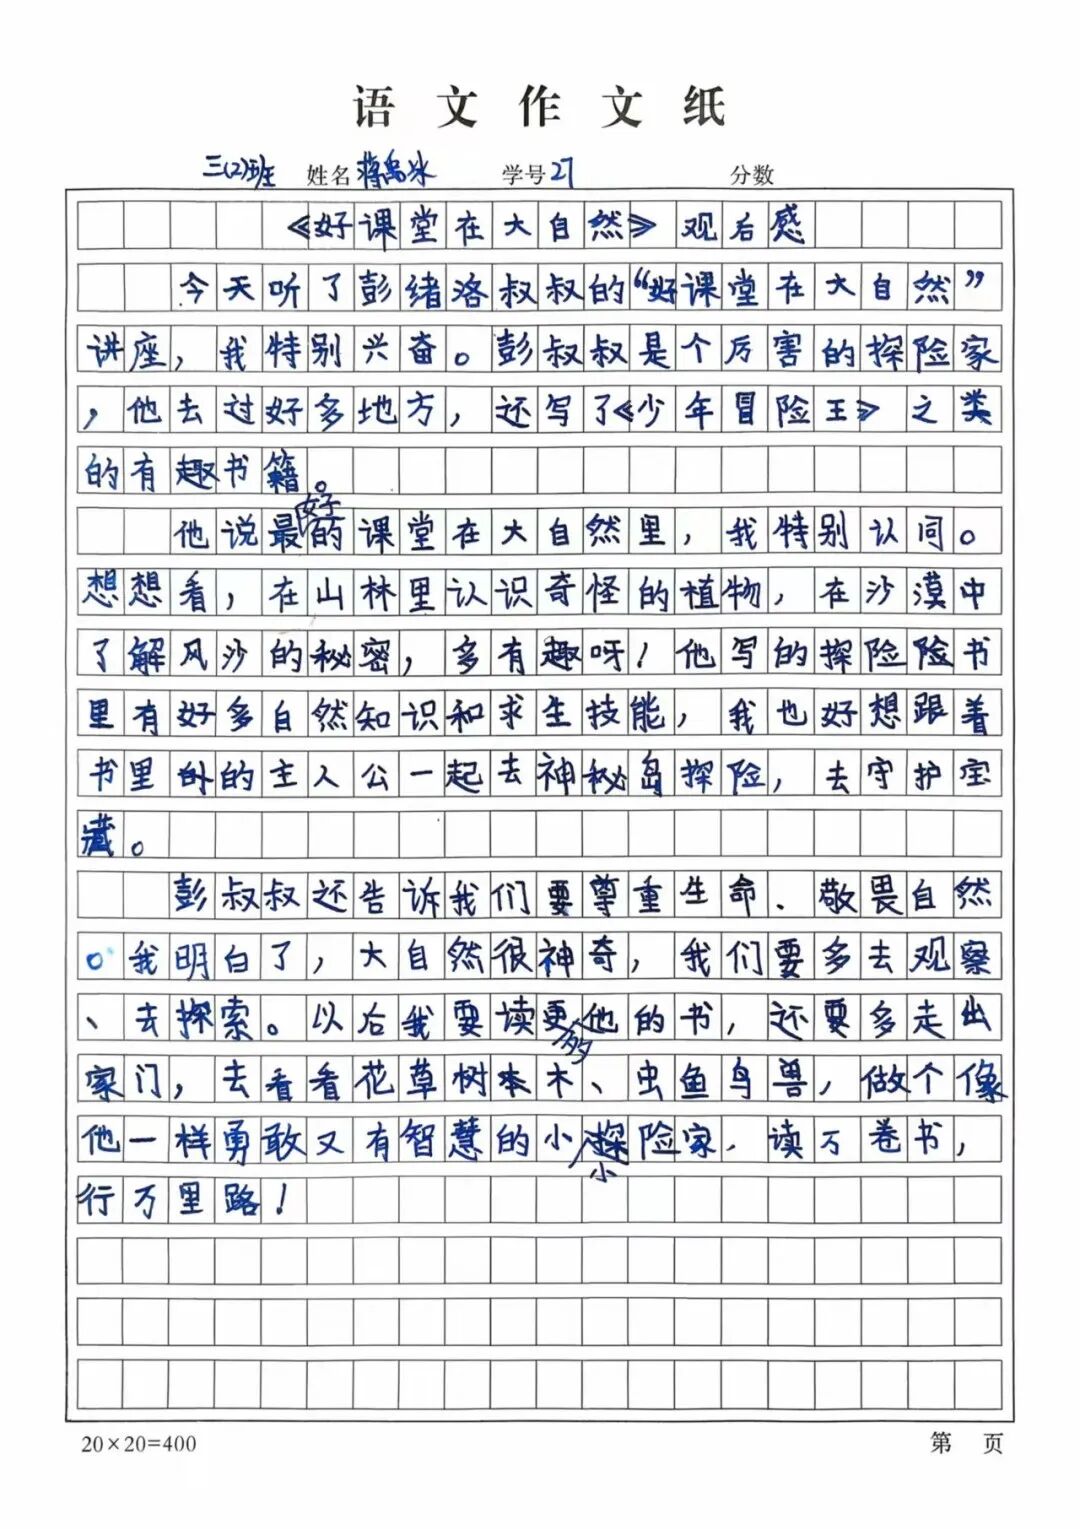 语文作文纸
三(2)班 姓名 蒋禹冰 学号 27 分数
《好课堂在大自然》观后感
今天听了彭绪洛叔叔的“好课堂在大自然”
讲座，我特别兴奋。彭叔叔是个厉害的探险家
，他去过好多地方，还写了《少年冒险王》之类
的有趣书籍。
他说最好的课堂在大自然里，我特别认同。
想想看，在山林里认识奇怪的植物，在沙漠中
了解风沙的秘密，多有趣呀！他写的探险险书
里有好多自然知识和求生技能，我也好想跟着
书里的主人公一起去神秘岛探险，去守护宝
藏。
彭叔叔还告诉我们要尊重生命、敬畏自然
。我明白了，大自然很神奇，我们要多去观察
、去探索。以后我要读更多他的书，还要多走出
家门，去看看花草树木、虫鱼鸟兽，做个像
他一样勇敢又有智慧的小小探险家，读万卷书，
行万里路！
20×20=400 第 页